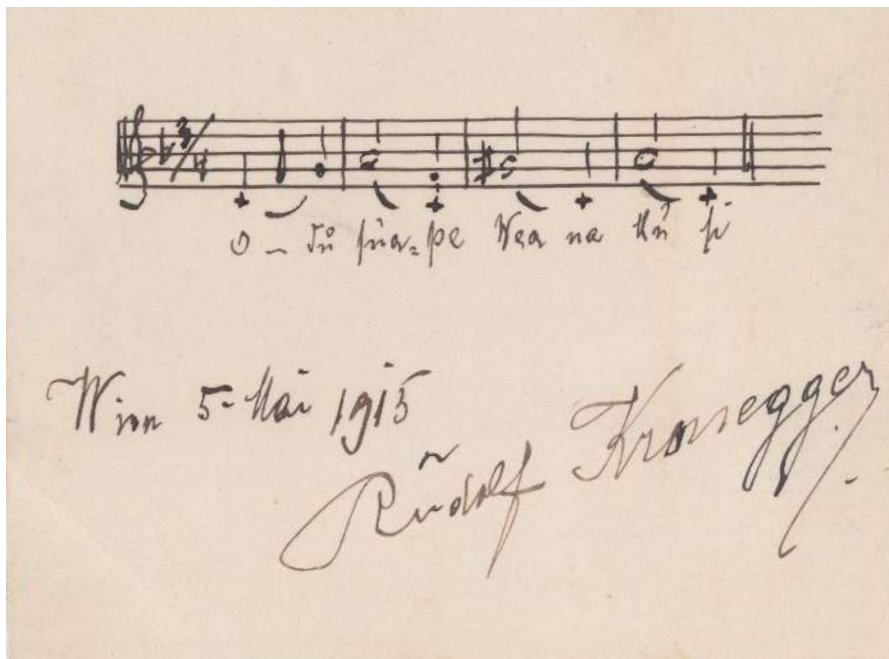 3/4
O – du süa=ße Wea na Mu si
Wien 5. Mai 1915
Rudolf Kronegger